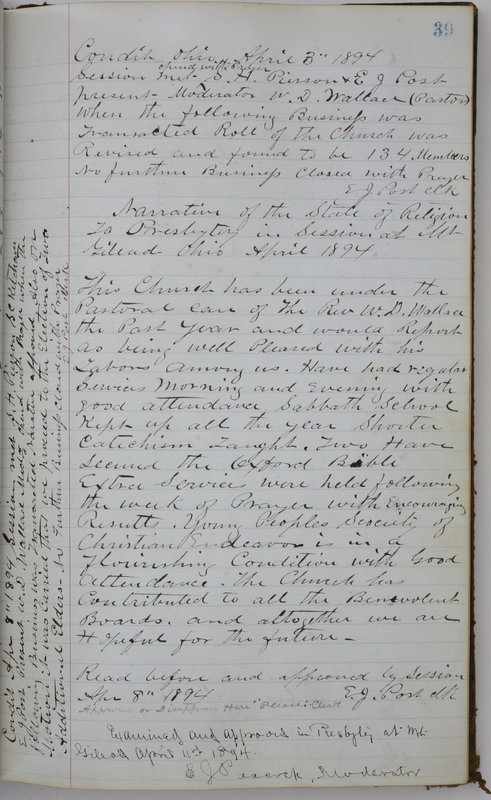 39
Condit Ohio April 3" 1894
opened with Prayer
Session met S. H. Pierson & E J Post
present Moderator W. D. Wallace (Pastor)
When the following Business was
Transacted Roll of the Church was
Revised and found to be 134 Members
No further Business Closed with Prayer
E J Post clk
Narrative of the State of Religion
To Presbytery in Session at Mt
Gilead Ohio April 1894
This Church has been under the
Pastoral care of The Rev W. D. Wallace
the Past Year and would Report
as being well Pleased with his
Labors among us. Have had regular
Servics Morning and Evening with
good attendance Sabbath School
Kept up all the year Shorter
Catechism Taught. Two Have
Secured the Oxford Bible
Extra Services were held following
the week of Prayer with Encouraging
Results. Young Peoples Society of
Christian Endeavor is in a
flourishing Condition with Good
Attendance. The Church has
Contributed to all the Benevolent
Boards. and altogether we are
Hopeful for the future -
Read before and approved by Session
Apr 8th 1894 E. J. Post clk
Approve or Disapprove Here "Please" Clerk
Examined and approved in Presbytery at Mt.
Gilead April 11th 1894.
E J Peacock, Moderator
Condit Apr 8" 1894 Session met S. H. Pierson
E J Post Present W. D. Wallace Mod with Prayer when the
following Business was Transacted Narrative approved Also on
Motion it was Carried that we proceed to the Election of Two
Additional Elders - No further Business closed with Prayer
E J Post clk